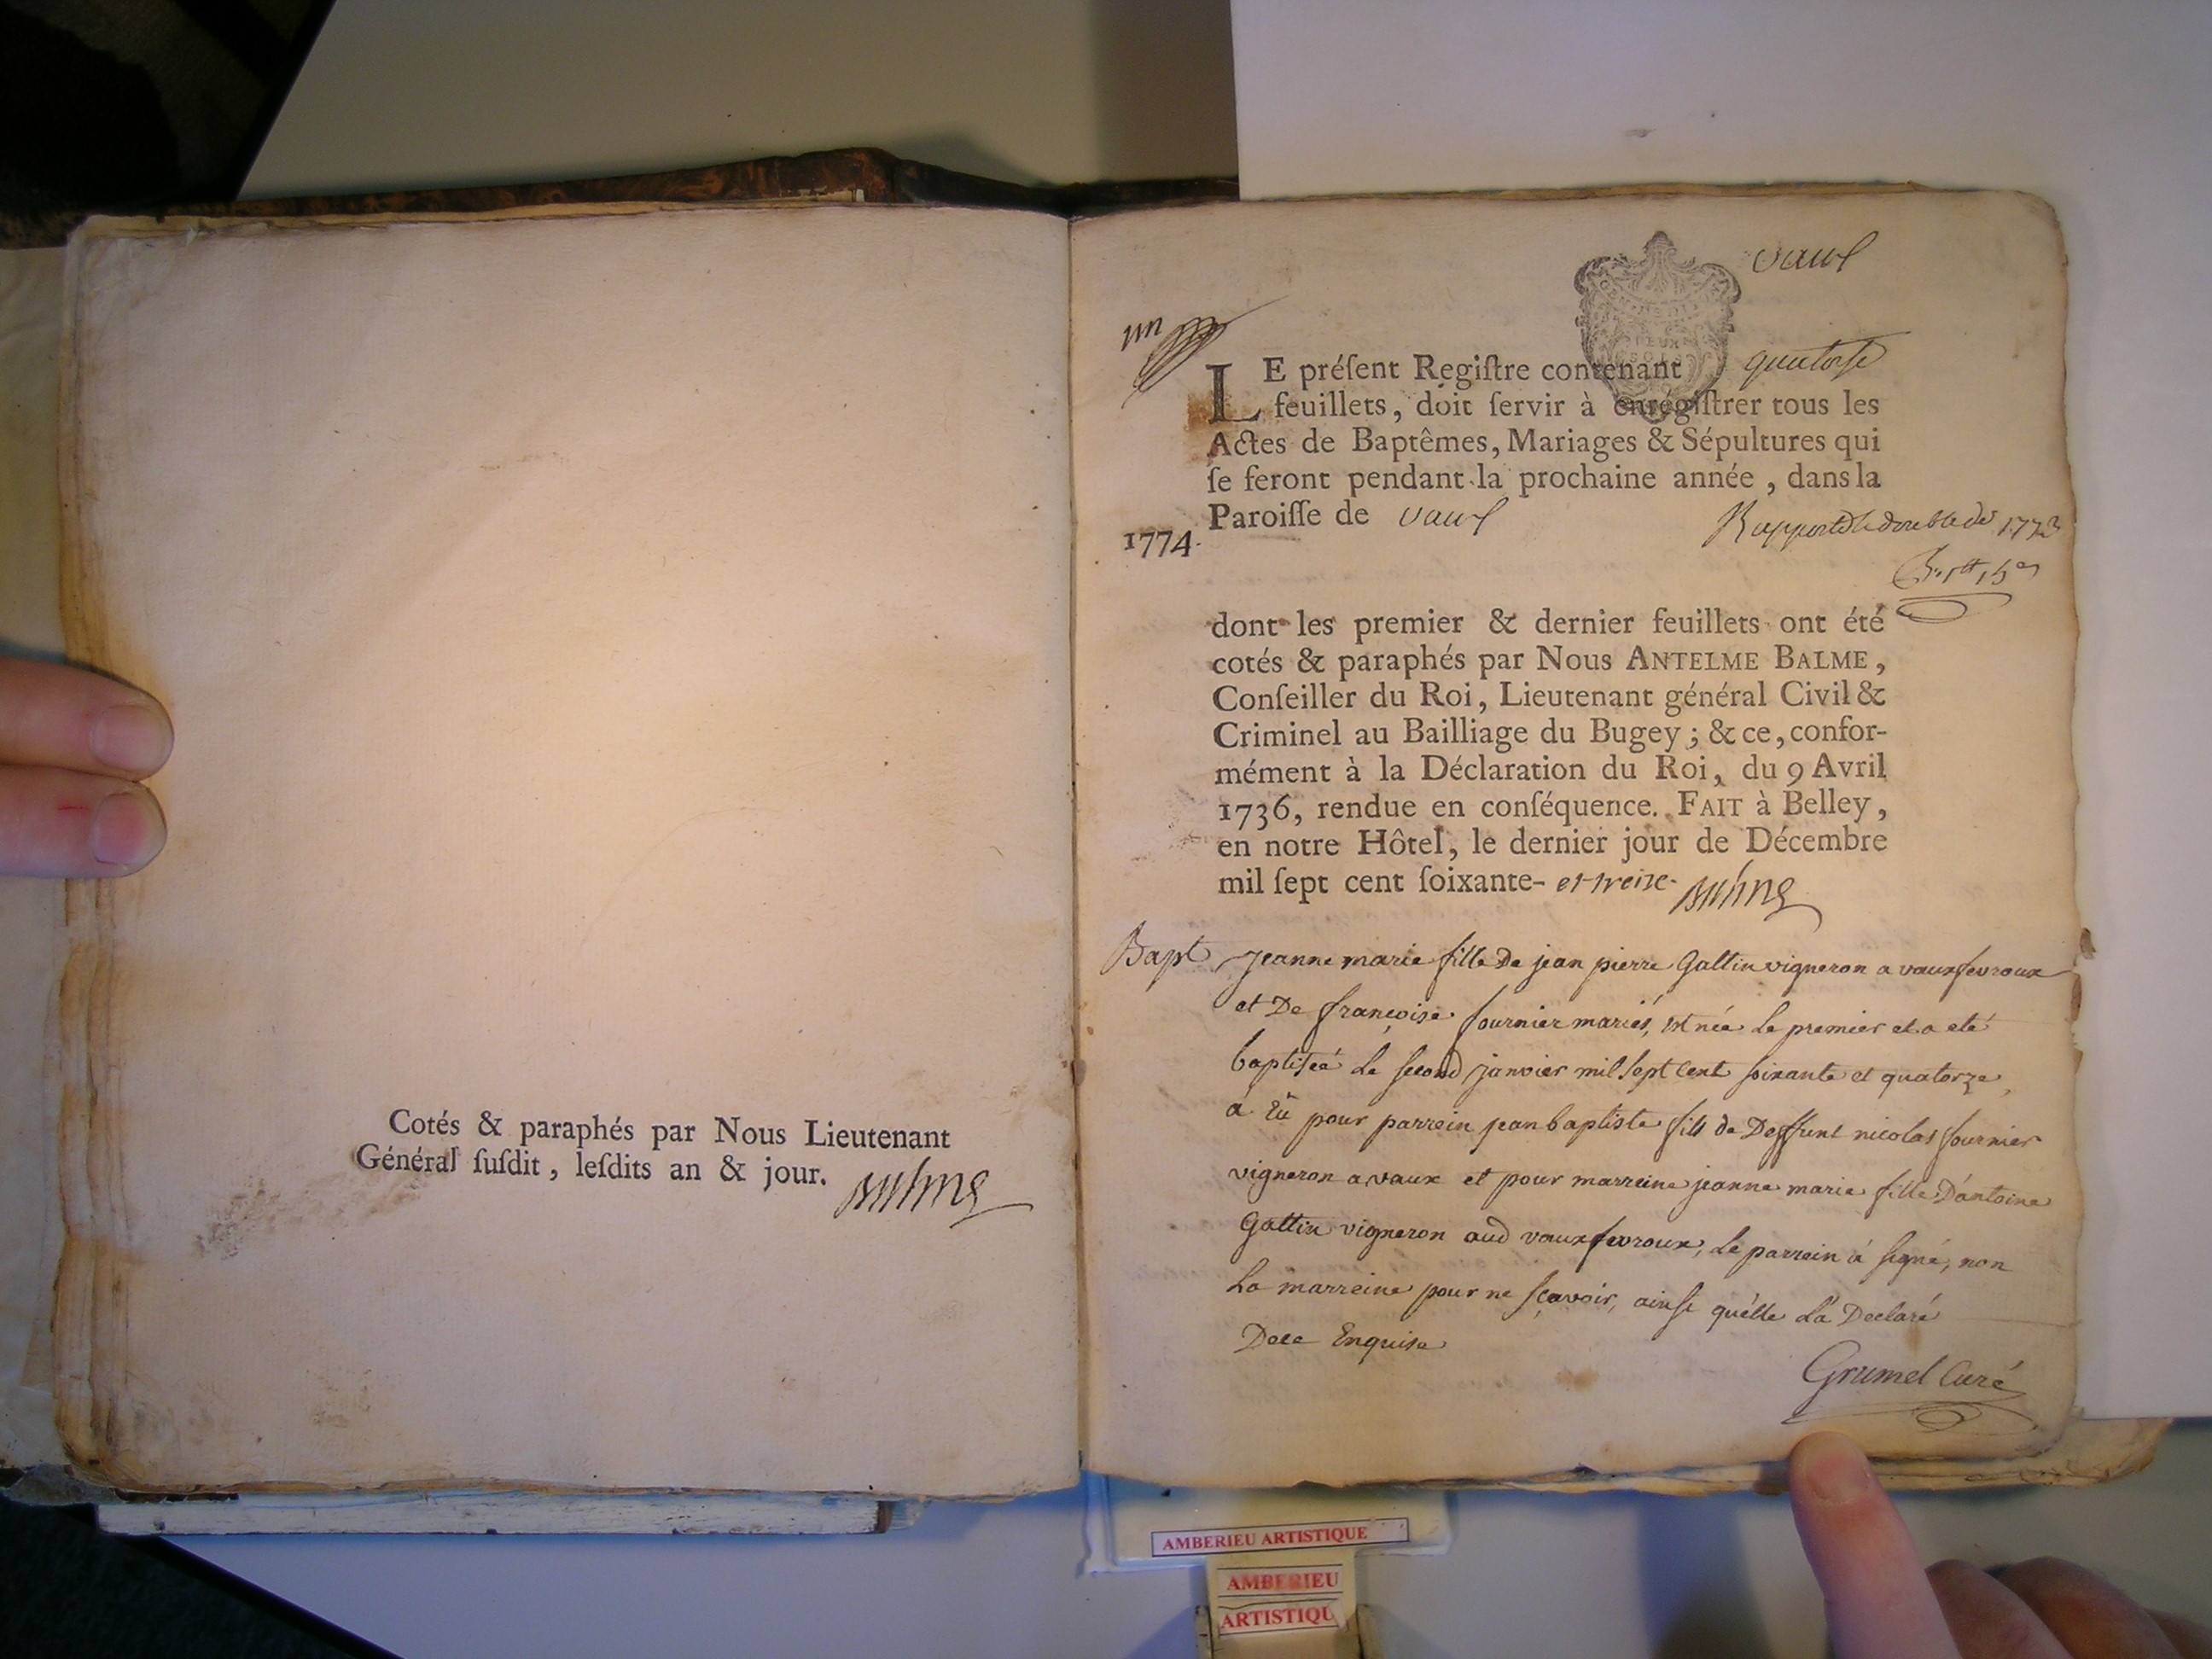 Cotés & paraphés par Nous Lieutenant
Général ſuſdit, leſdits an & jour.
Balme
vaux
un
LE préſent Regiſtre contenant quatorſe
feuillets, doit ſervir à enrégiſtrer tous les
Actes de Baptêmes, Mariages & Sépultures qui
ſe feront pendant la prochaine année, dans la
Paroiſſe de vaux
1774.
Rapporté le double de 1773
dont les premier & dernier feuillets ont été
cotés & paraphés par Nous ANTELME BALME,
Conſeiller du Roi, Lieutenant général Civil &
Criminel au Bailliage du Bugey; & ce, confor-
mément à la Déclaration du Roi, du 9 Avril
1736, rendue en conſéquence. FAIT à Belley,
en notre Hôtel, le dernier jour de Décembre
mil ſept cent ſoixante- et treize. Balme
Bapt Jeanne marie fille De jean pierre Gallin vigneron a vauxfevroux
et De françoise fournier mariés, est née le premier et a eté
baptiseé le second janvier mil sept cent soixante et quatorze,
á Eü pour parrein jean baptiste fils de Deffunt nicolas fournier
vigneron a vaux et pour marreine jeanne marie fille D'antoine
Gallin vigneron aud vauxfevroux, le parrein à signé, non
la marreine pour ne sçavoir, ainsi quélle l'a Declaré
De ce Enquise
Grumel Curé
AMBERIEU ARTISTIQUE
AMBERIEU
ARTISTIQU